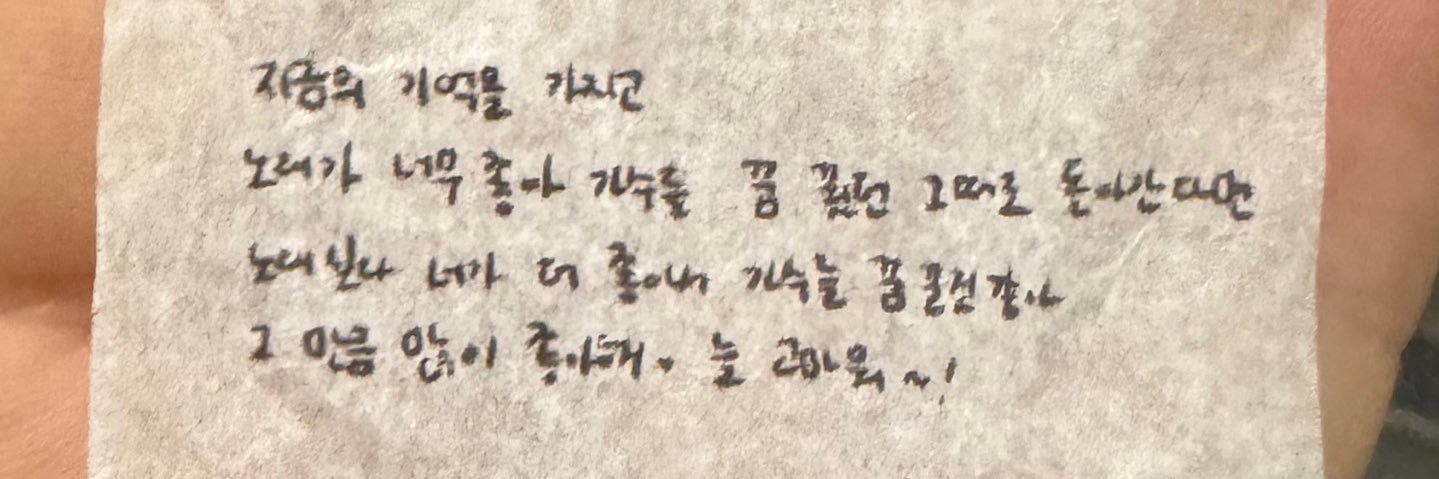 지금의 기억을 가지고
노래가 너무 좋아 가수를 꿈 꿨던 그때로 돌아간다면
노래보다 네가 더 좋아서 가수를 꿈 꿀것 같아
그 만큼 많이 좋아해. 늘 고마워~!